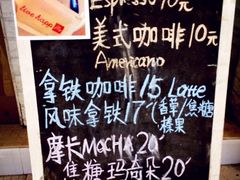 Espresso 10元
美式咖啡 10元
Americano
拿铁咖啡 15 Latte
风味拿铁 17 (香草/焦糖
榛果
摩卡 MOCHA 20
焦糖玛奇朵 20